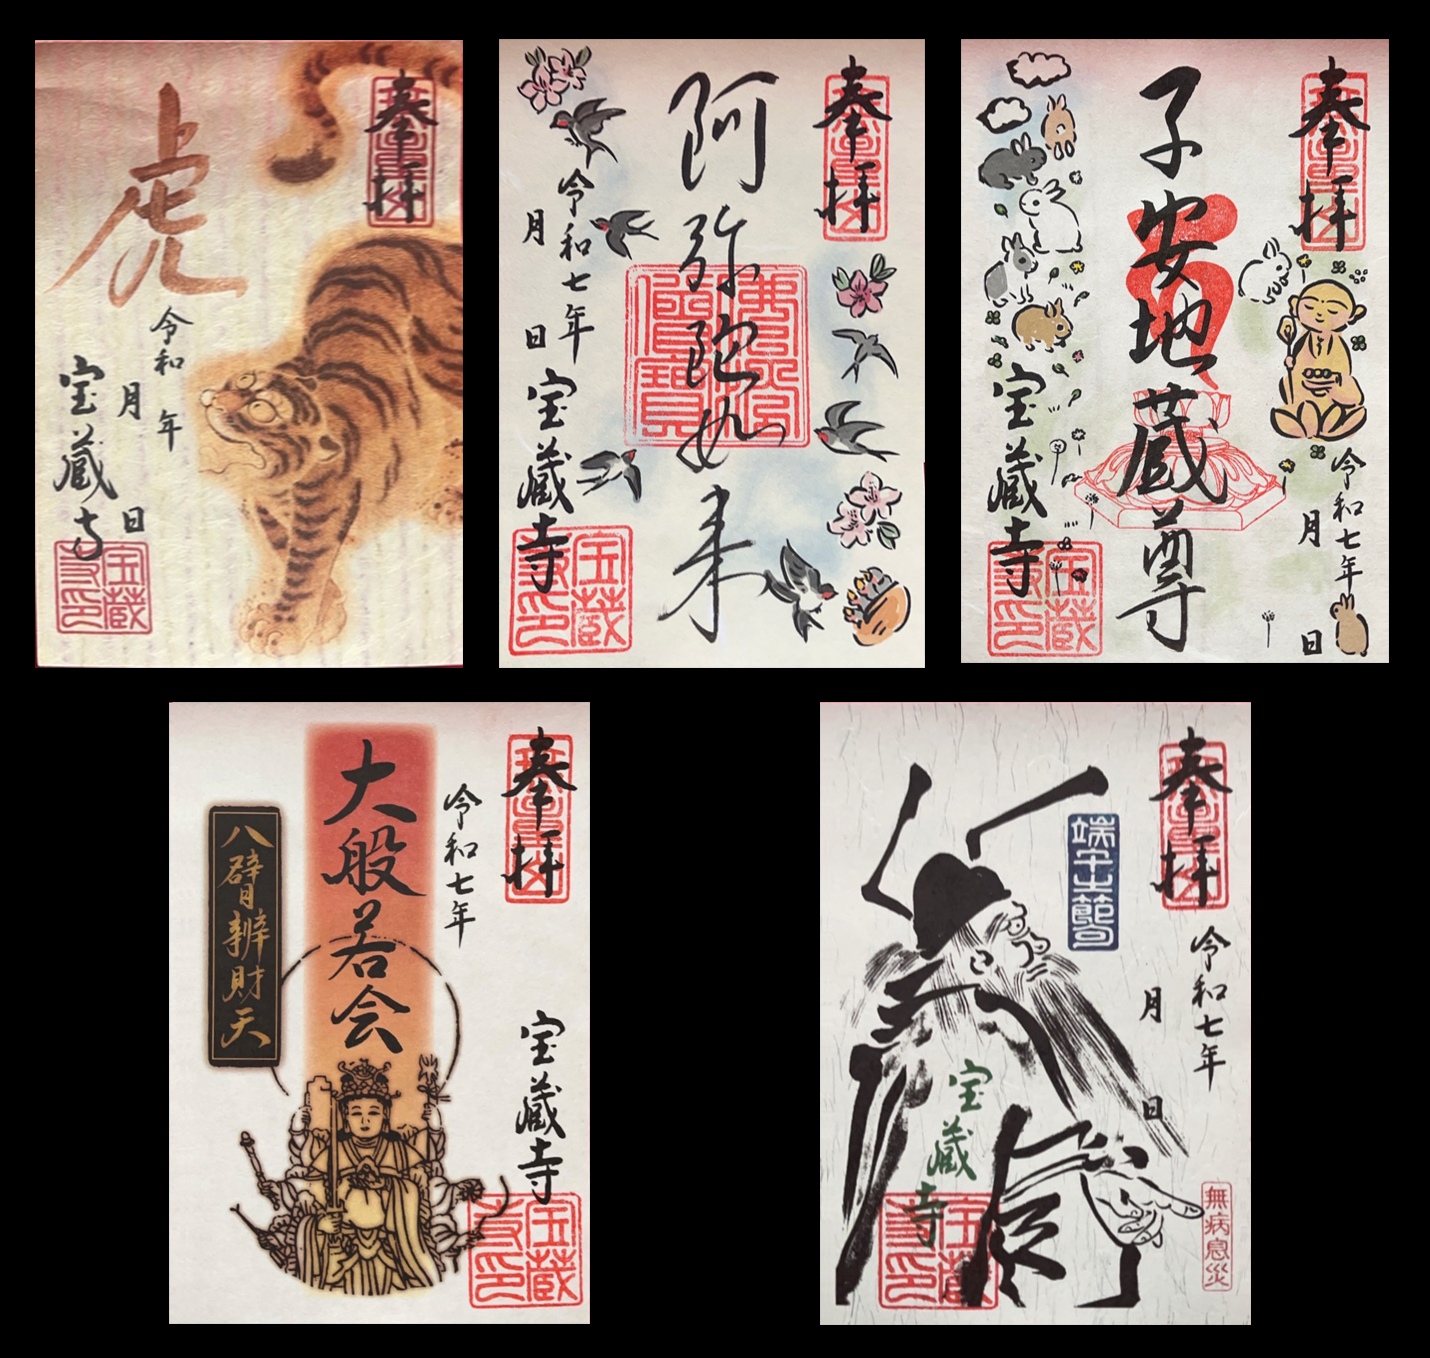 奉拝
虎
令和 年
月 日
宝蔵寺
宝蔵寺印
奉拝
阿弥陀如来
令和七年
月 日
宝蔵寺
宝蔵寺印
奉拝
令和七年
月 日
子安地蔵尊
宝蔵寺
宝蔵寺印
奉拝
令和七年
宝蔵寺
宝蔵寺印
大般若会
八臂辨財天
奉拝
令和七年
月 日
無病息災
端午之節句
宝蔵寺
宝蔵寺印